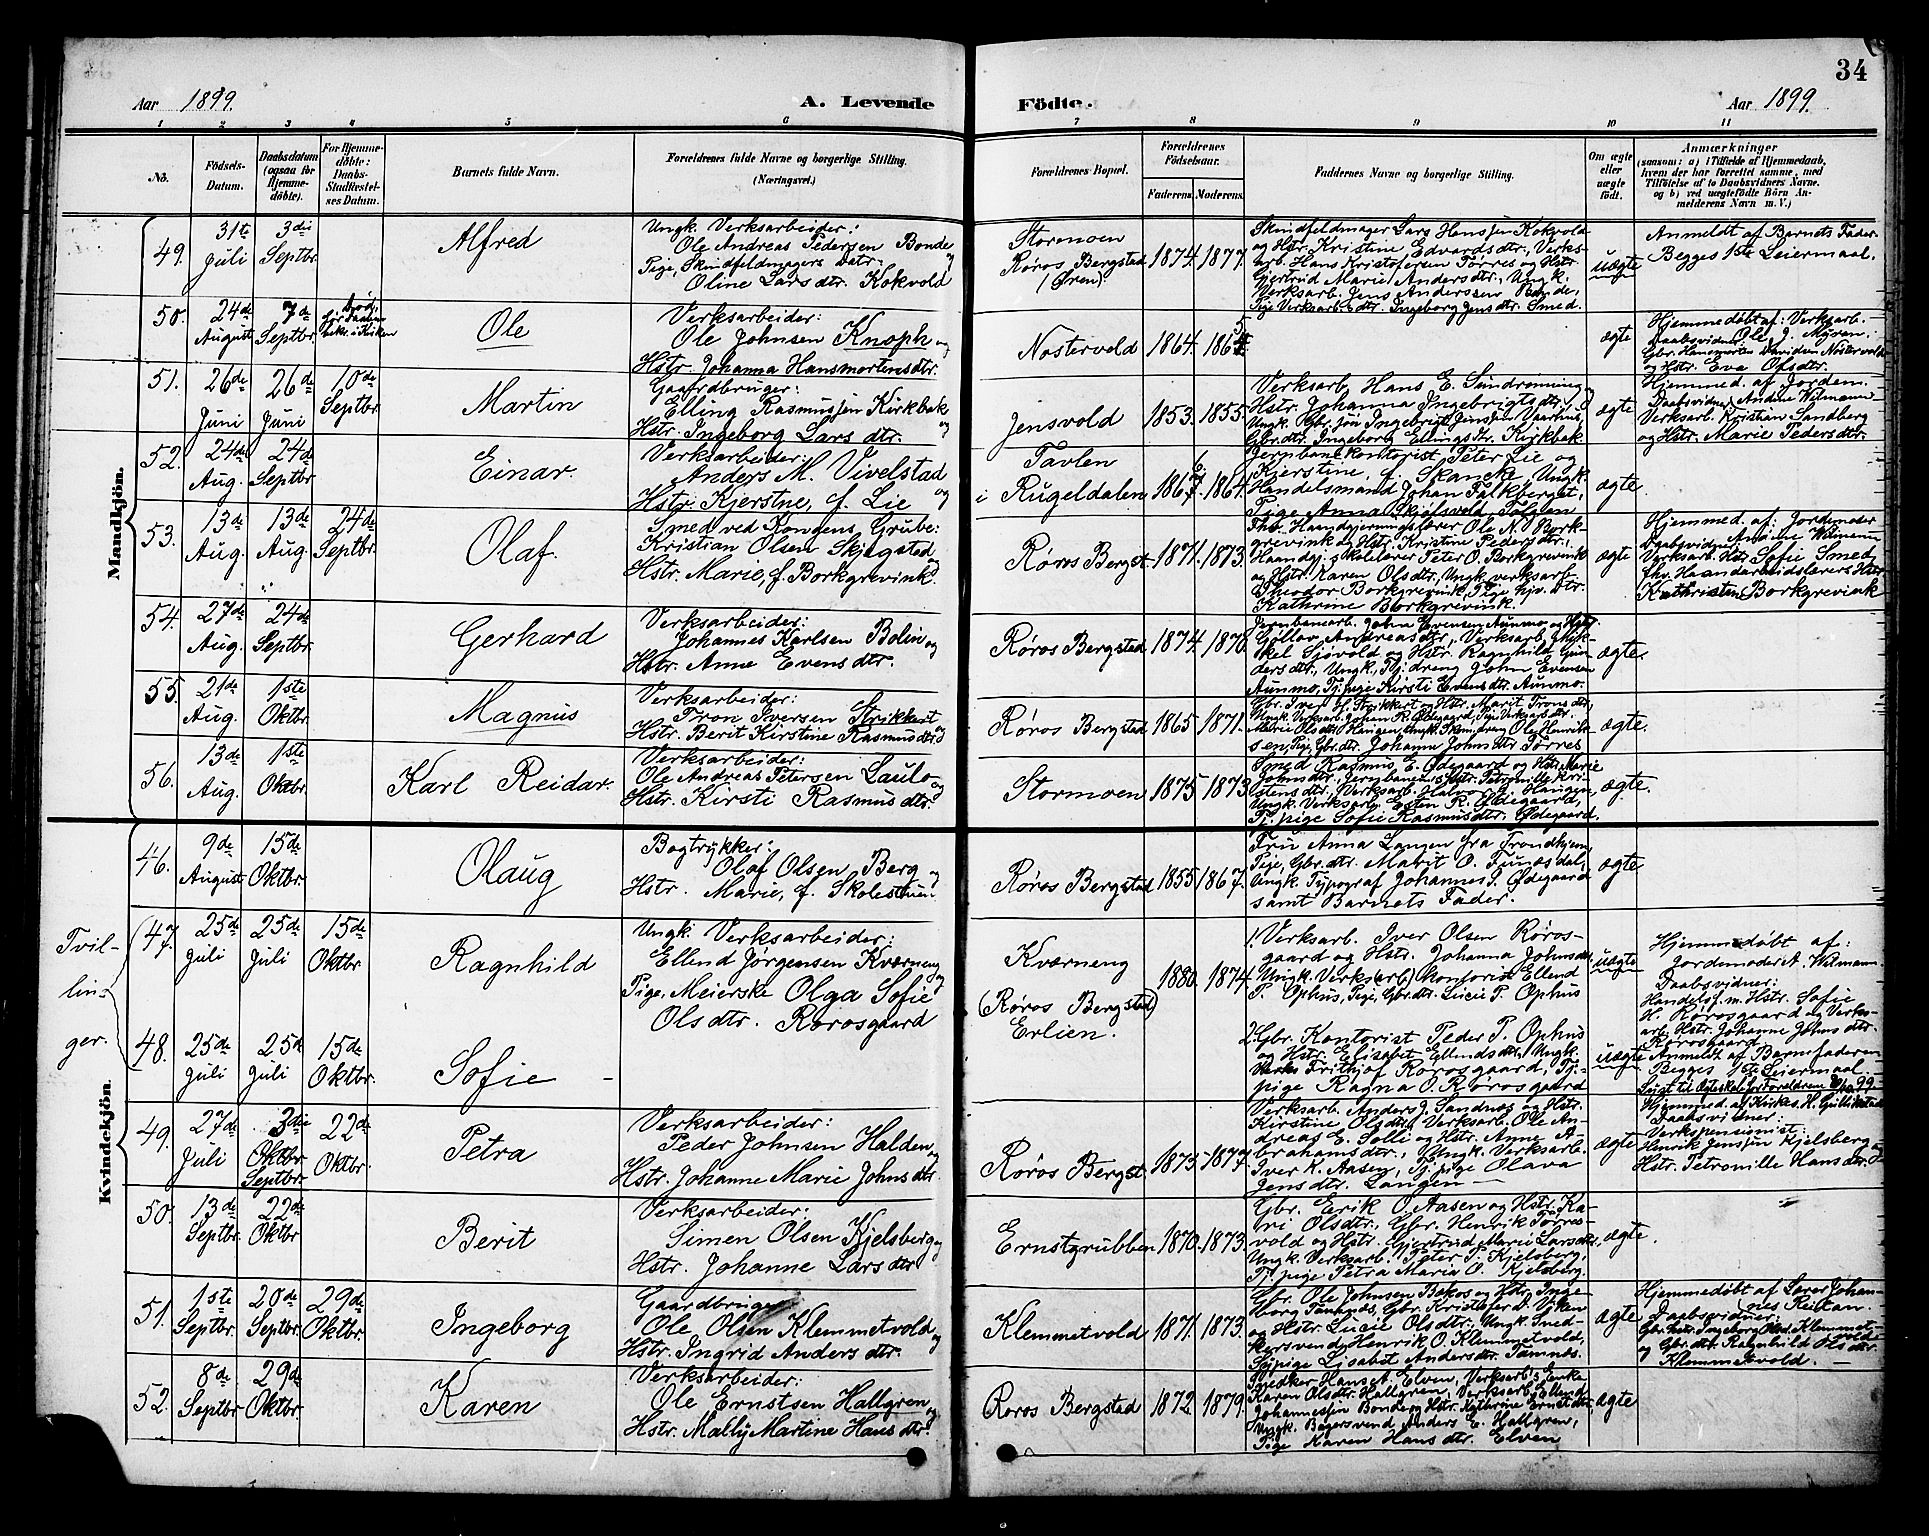 34
Aar 1899. A. Levende Födte. Aar 1899.
1 2 3 4 5 6 7 8 9 10 11
No. Födsels-Datum. Daabsdatum (ogsaa for Hjemme-döbte). For Hjemme-döbte: Daabs-Stadfæstel-ses Datum. Barnets fulde Navn. Forældrenes fulde Navne og borgerlige Stilling. (Næringsvei.) Forældrenes Bopæl. Forældrenes Födselsaar. Faderens Moderens. Faddernes Navne og borgerlige Stilling. Om ægte eller uægte födt. Anmærkninger (saasom: a) i Tilfælde af Hjemmedaab, hvem der har forrettet samme, med Tilföielse af to Daabsvidners Navne, og b) ved uægtefödte Börn An-melderens Navn m. V.)
Mandkjön.
49. 31te Juli 3die Septbr. Alfred
Ungk. Verksarbeider:
Ole Andreas Pedersen Bonde og
Pige, Skindfeldmagers Datr.
Oline Larsdtr. Kokvold
Stormoen
Røros Bergstad
(Øren)
1874. 1877.
Skindfeldmager Lars Hansen Kokvold
og Hstr. Kristine Edvardsdtr., Verks-
arb. Hans Kristofersen Tørres og Hstr
Gjertrud Marie Andersdtr., Ungk.
Verksarb. Jens Anderssen Bonde,
Pige Verksarb.dtr. Ingeborg Jensdtr. Smed.
uægte
Anmeldt af Barnets Fader
Begges 1ste Leiermaal.
50. 24de August 7de Septbr.
Ole
Verksarbeider:
Ole Johnsen Knoph og
Hstr. Johanna Hansmortensdtr.
Nostervold 1864. 1865.
ægte
Hjemmedøbt af: Verksarb.
Ole J. Møren.
Daabsvidner
Gbr. Hansmorten Davidsen Nostervold
og Hstr. Eva Olsdtr.
51. 26de Juni 26de Juni 10de Septbr. Martin
Gaardbruger:
Elling Rasmussen Kirkbak og
Hstr. Ingeborg Larsdtr.
Jensvold 1853. 1855.
Verksarb. Hans E. Sundrønning og
Hstr. Johanna Ingebrigtsdtr.,
Ungk. Gbr. Jon Ingebrigt Jensen Vaartun,
Gbr.dtr. Ingeborg Ellingsdtr. Kirkbak
ægte
Hjemmed. af Jordem.
Andine Wilmann
Daabsvidner
Verksarb. Kristian Sandberg
og Hstr. Marie Pedersdtr.
52. 24de Aug. 24de Septbr. Einar.
Verksarbeider:
Anders M. Vivelstad og
Hstr. Kjerstne, f. Lie
Tavlen
i Rugeldalen 1867. 1864.
Jernbanekontorist Peter Lie og
Kjerstine, f. Skancke, Ungk.
Handelsmand Johan Falkberget,
Pige Anna Skjelsvold, Tolgen
ægte.
53. 13de Aug. 13de Aug. 24de Septbr. Olaf.
Smed ved Kongens Grube:
Kristian Olsen Skjegstad og
Hstr. Marie, f. Borkgrevink.
Røros Bergst. 1871. 1873.
Fhv. Haandgjerningslærer Ole N. Bork-
grevink og Hstr. Kristine Pedersdtr.,
Haandgj.skolelærer Peter O. Borkgrevink
og Hstr. Karen Olsdtr., Ungk. verksarb.
Theodor Borkgrevink, Pige hjv. Dtr.
Kathrine Borkgrevink.
ægte
Hjemmed. af: Jordemoder
Andine Wilmann
Daabsvidner
Verksarb. Hstr. Sofie Smed,
fhv. Haandarbeidslærers Hstr
Kathristen Borkgrevink
54. 27de Aug. 24de Septbr. Gerhard
Verksarbeider:
Johannes Karlsen Bolin og
Hstr. Anne Evensdtr.
Røros Bergstad 1874. 1876.
Jernbanearb. John Evensen Aunmo og Hstr.
Gollav Andreasdtr., Verksarb. Mik-
kel Sjøvold og Hstr. Ragnhild Gun
dersdtr., Ungk., Tj.dreng John Evensen
Aunmo, Tj.pige Kirsti Evensdtr. Aunmo.
ægte.
55. 21de Aug. 1ste Oktbr. Magnus
Verksarbeider:
Tron Iversen Strikkert og
Hstr. Berit Kirstine Rasmusdtr.
Røros Bergstad 1865 1871.
Gbr. Iver H. Strikkert og Hstr. Marit Tronsdtr.,
Ungk. Verksarb. Johan R. Ødegaard, Pige Verksarb.dtr.
Marie Olsdtr. Haugen, Ungk. Skindreng Ole Henrik-
sen, Pige, Gbr.dtr. Johanna Johnsdtr Tørres
ægte.
56. 13de Aug. 1ste Oktbr. Karl Reidar.
Verksarbeider:
Ole Andreas Petersen Laulo og
Hstr. Kirsti Rasmusdtr.
Stormoen 1875 1873
Smed Rasmus E. Ødegaard og Hstr. Marie
Johnsdtr., Jernbanens Hstr. Petronille Kri-
stensdtr., Verksarb. Halvor J. Haugen,
Ungk. Verksarb. Esten R. Ødegaard,
Tj.pige Sofie Rasmusdtr. Ødegaard.
ægte.
Kvindekjön.
46. 9de August 15de Oktbr. Olaug
Bogtrykker:
Olaf Olsen Berg og
Hstr. Marie, f. Skolestuen.
Røros Bergstad 1855 1867.
Fru Anna Langen fra Trondhjem,
Pige, Gbr.dtr. Marit O. Funæsdal,
Ungk. Typograf Johannes P. Ødegaard
samt Barnets Fader.
ægte
Tvil-
lin-
ger.
47. 25de Juli 25de Juli 15de Oktbr. Ragnhild
Ungk. Verksarbeider:
Ellend Jørgensen Kværneng og
Pige, Meierske Olga Sofie
Olsdtr. Rørosgaard
Kværneng
(Røros Bergstad)
Erlien.
1880. 1874
1. Verksarb. Iver Olsen Røros-
gaard og Hstr. Johanna Johnsdtr.
Ungk. Verks(arb) Kontorist Ellend
P. Ophus, Pige, Gbr.dtr. Lucie P. Ophus
uægte
Hjemmedøbt af:
Jordemoder A. Wilmann.
Daabsvidner:
Handelsf.m. Hstr. Sofie
H. Rørosgaard og Verks-
arb. Hstr. Johanne Johnsdtr.
Rørosgaard.
48. 25de Juli 25de Juli 15de Oktbr. Sofie
2. Gbr. Kontorist Peder P. Ophus
og Hstr. Elisabet Ellendsdtr., Ungk.
Verks Frithjof Rørosgaard, Tj.
pige Ragna O. Rørosgaard
uægte
Anmeldt af Barnefaderen
Begges 1ste Leiermaal.
49. 27de Juli 3die Oktbr Septbr. 22de Oktbr. Petra
Verksarbeider:
Peder Johnsen Halden, og
Hstr. Johanne Marie Johnsdtr.
Røros Bergst. 1875 1877.
Verksarb. Anders J. Sandnæs og Hstr.
Kirstine Olsdtr., Verksarb. Ole An-
dreas E. Solli og Hstr. Anne A-
brahamsdtr., Ungk. Verksarb.
Iver K. Aasen, Tj.pige Olava
Jensdtr. Langen
ægte
Hjemmed. af Kirkes. H. Gullikstad
Daabsvidner:
Verkspensionist:
Henrik Jensen Kjelsberg og
Hstr. Petronille Hansdtr.
50. 13de Septbr. 22de Oktbr. Berit
Verksarbeider:
Simen Olsen Kjelsberg og
Hstr. Johanne Larsdtr
Ernstgrubben 1870. 1873.
Gbr. Erik O. Aasen og Hstr. Ka-
ri Olsdtr., Gbr. Henrik Tørres-
vold og Hstr. Gjertrud Marie Larsdtr.,
Ungk. Verksarb. Peter P. Kjelsberg,
Tj.pige Petra Maria O. Kjelsberg.
ægte.
51. 1ste Septbr. 20de Septbr. 29de Oktbr. Ingeborg
Gaardbruger
Ole Olsen Klemmetvold og
Hstr. Ingrid Andersdtr.
Klemmetvold 1871. 1873.
Gbr. Ole Johnsen Bakos og Hstr. Inge-
borg Tamnæs, Gbr. Kristofer D. Viken
og Hstr. Lucie Olsdtr., Ungk. Sned-
kersvend Henrik O. Klemmetvold,
Sypige Lisabet Andersdtr. Tamnæs.
ægte
Hjemmedøbt af Lærer Johan-
nes Reitan.
Daabsvidner:
Gbr.hstr. Ingeborg Olsd. Klemmet-
vold
og Gbr.dtr. Ragnhild Olsdtr.
Klemmetvold.
52. 8de Septbr 29de Oktbr. Karen
Verksarbeider:
Ole Ernstsen Hallgren, og
Hstr. Mally Martine Hansdtr.
Røros Bergstad 1872. 1879.
Snedker Hans A. Elven, Verksarb.s Enke
Karen Olsdtr. Hallgren, Verksarb. Ellend
Johannessen Bonde og Hstr. Kathrine Ernstdtr.,
Ungk. Bagersvend Anders E. Hallgren,
Pige Karen Hansdtr. Elven
ægte